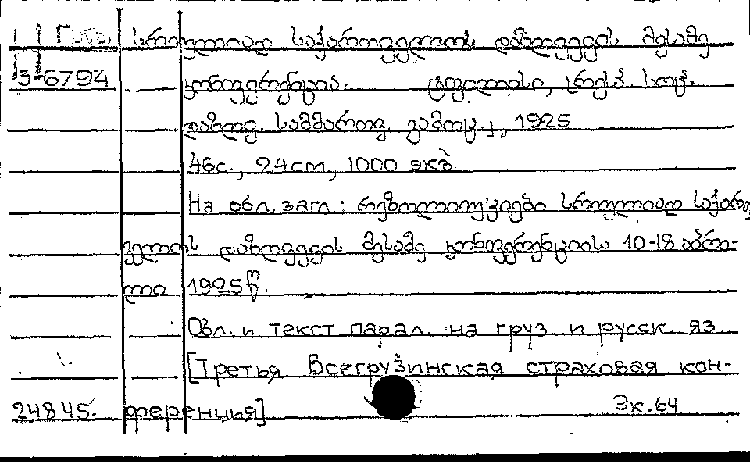 სრულიად საქართველოს დაზღვევის მესამე
3-6794 კონფერენცია. ტფილისი, სოც.
დაზღვ. სამმართ. გამოც., 1925
46с., 24см, 1000 экз
На обл. загл: რეზოლიუციები სრულიად საქართ
ველოს დაზღვევის მესამე კონფერენციისა 10-18 აპრი-
ლი 1925 წ.
Обл. и текст парал. на груз и русск яз
[Третья Всегрузинская страховая кон-
24845. ференция] Зк.64